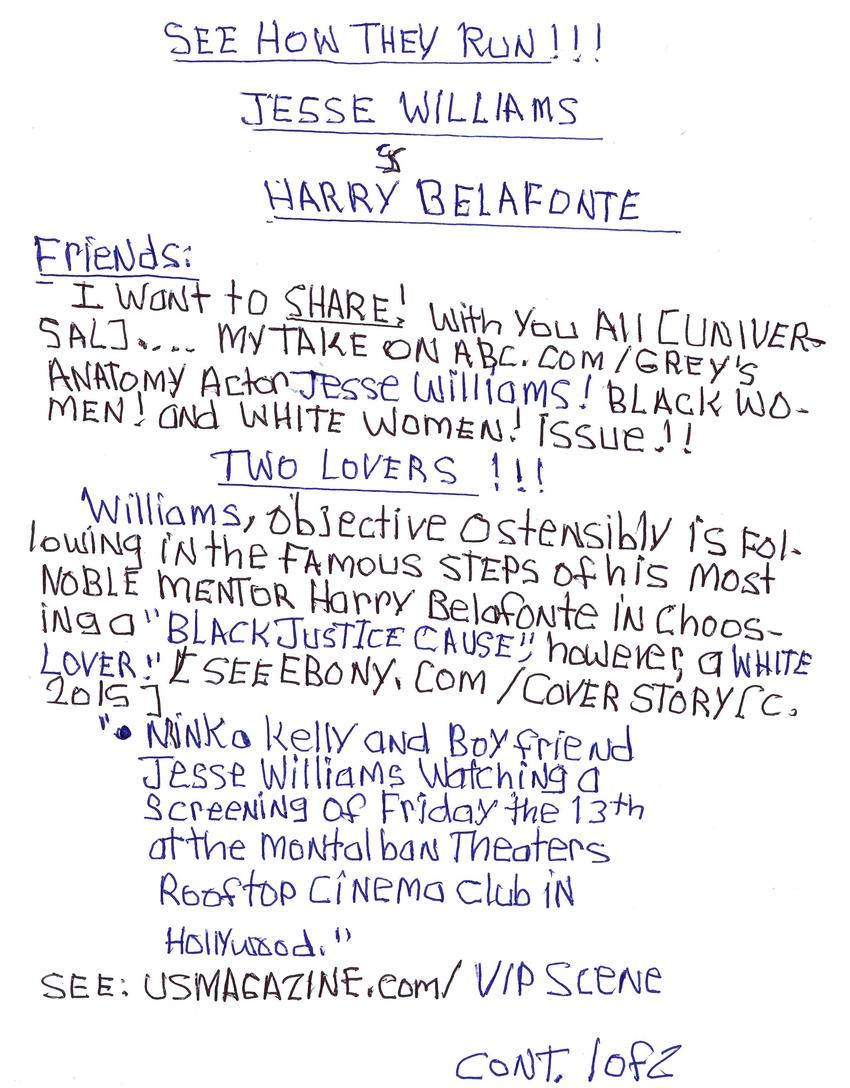 SEE HOW THEY RUN!!!
JESSE WILLIAMS
&
HARRY BELAFONTE
Friends:
I Want to SHARE! with You All [UNIVER-
SAL].... MY TAKE ON ABC.COM/GREY'S
ANATOMY Actor Jesse Williams! BLACK WO-
MEN! and WHITE WOMEN! ISSUE!!
TWO LOVERS !!!
Williams, objective ostensibly is Fol-
lowing in the FAMOUS STEPS of his Most
NOBLE MENTOR Harry Belafonte in Choos-
ing a "BLACK JUSTICE CAUSE", however, a WHITE
LOVER!" [SEE EBONY.COM/COVER STORY[C.
2015]
"• Ninka Kelly and Boyfriend
Jesse Williams Watching a
Screening of Friday the 13th
at the Montalban Theaters
Rooftop Cinema Club in
Hollywood."
SEE: USMAGAZINE.com/ VIP SCENE
CONT. 1 of 2